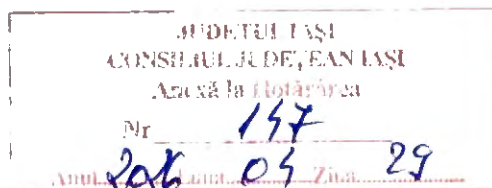 JUDEŢUL IAŞI
CONSILIUL JUDEŢEAN IAŞI
Anexă la Hotărârea
Nr 147
Anul 2016 Luna 04 Ziua 29